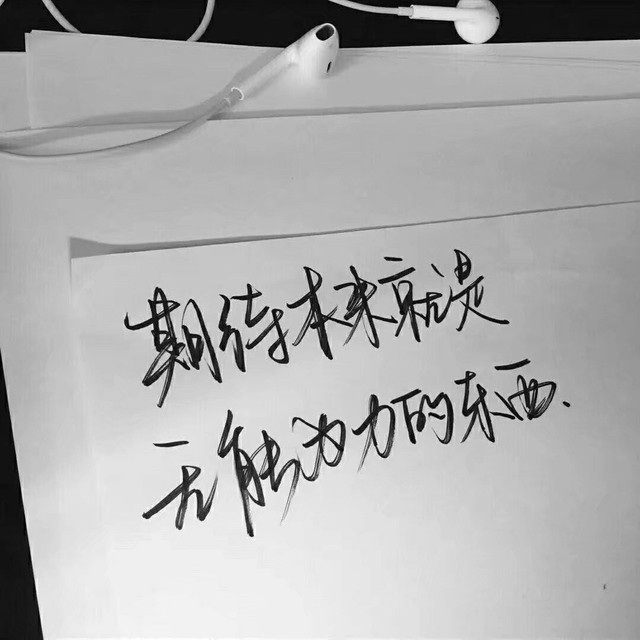 期待本来就是
无能为力的东西、